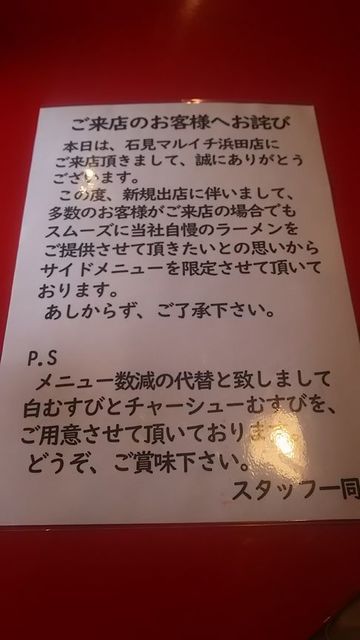 ご来店のお客様へお詫び
本日は、石見マルイチ浜田店に
ご来店頂きまして、誠にありがとう
ございます。
この度、新規出店に伴いまして、
多数のお客様がご来店の場合でも
スムーズに当社自慢のラーメンを
ご提供させて頂きたいとの思いから
サイドメニューを限定させて頂いて
おります。
あしからず、ご了承下さい。
P.S
メニュー数減の代替と致しまして
白むすびとチャーシューむすびを、
ご用意させて頂いております。
どうぞ、ご賞味下さい。
スタッフ一同